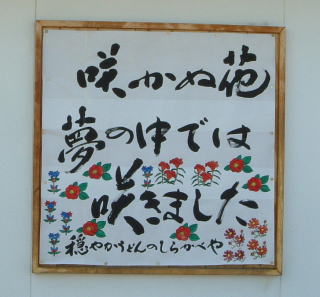 咲かぬ花
夢の中では
咲きました
穏やかうどんのしらかべや